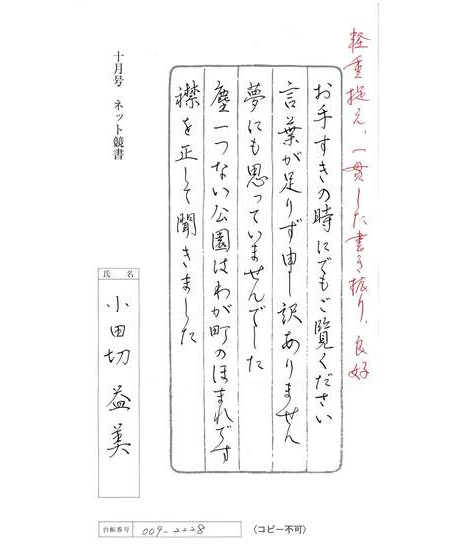 軽重捉え、一貫した書き振り、良好
お手すきの時にでもご覧ください
言葉が足りず申し訳ありません
夢にも思っていませんでした
塵一つない公園はわが町のほまれです
襟を正して聞きました
十月号 ネット競書
氏名
小田切益美
台帳番号 009-2228
〈コピー不可〉